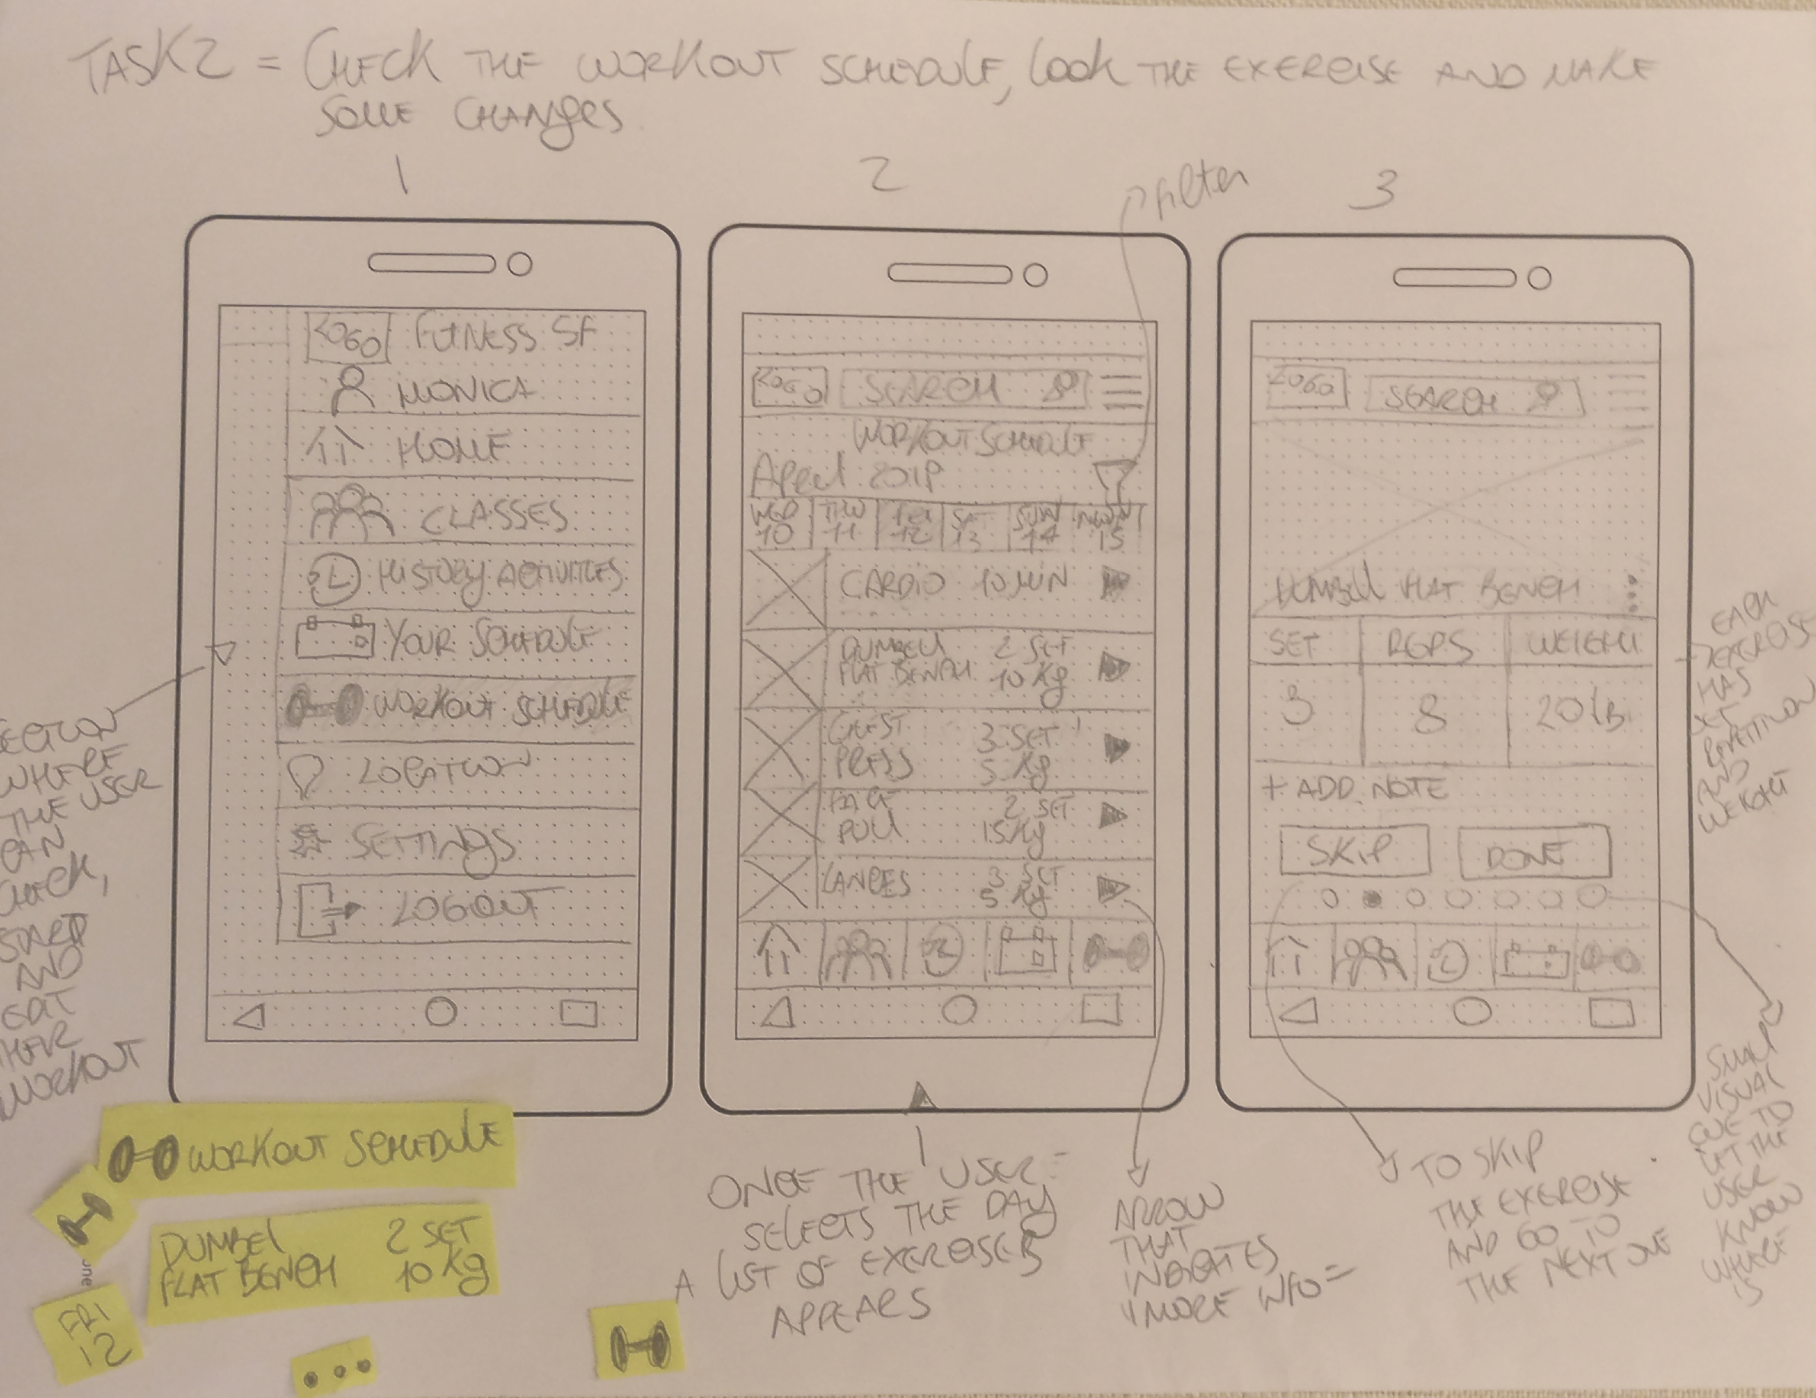 TASK 2 = CHECK THE WORKOUT SCHEDULE, LOOK THE EXERCISE AND MAKE
SOME CHANGES.
1
2
3
filter
LOGO FITNESS SF
MONICA
HOME
CLASSES
HISTORY ACTIVITIES
YOUR SCHEDULE
WORKOUT SCHEDULE
LOCATION
SETTINGS
LOGOUT
LOGO SEARCH
WORKOUT SCHEDULE
April 2019
WED THU FRI SAT SUN MON
10 11 12 13 14 15
CARDIO 10 MIN
DUMBELL 2 SET
FLAT BENCH 10 Kg
CHEST 3 SET
PRESS 5 Kg
FACE 2 SET
PULL 15 Kg
LANGES 3 SET
5 Kg
LOGO SEARCH
DUMBELL FLAT BENCH
SET REPS WEIGHT
3 8 20 lb
+ ADD NOTE
SKIP DONE
SECTION
WHERE
THE USER
CAN
CHECK,
START
AND
EDIT
THEIR
WORKOUT
EACH
EXERCISE
HAS
SET
REPETITION
AND
WEIGHT
WORKOUT SCHEDULE
DUMBEL 2 SET
FLAT BENCH 10 Kg
FRI
12
ONCE THE USER
SELECTS THE DAY
A LIST OF EXERCISES
APPEARS
ARROW
THAT
INDICATES
"MORE INFO"
TO SKIP
THE EXERCISE
AND GO TO
THE NEXT ONE
SMALL
VISUAL
CUE TO
LET THE
USER
KNOW
WHERE
IS